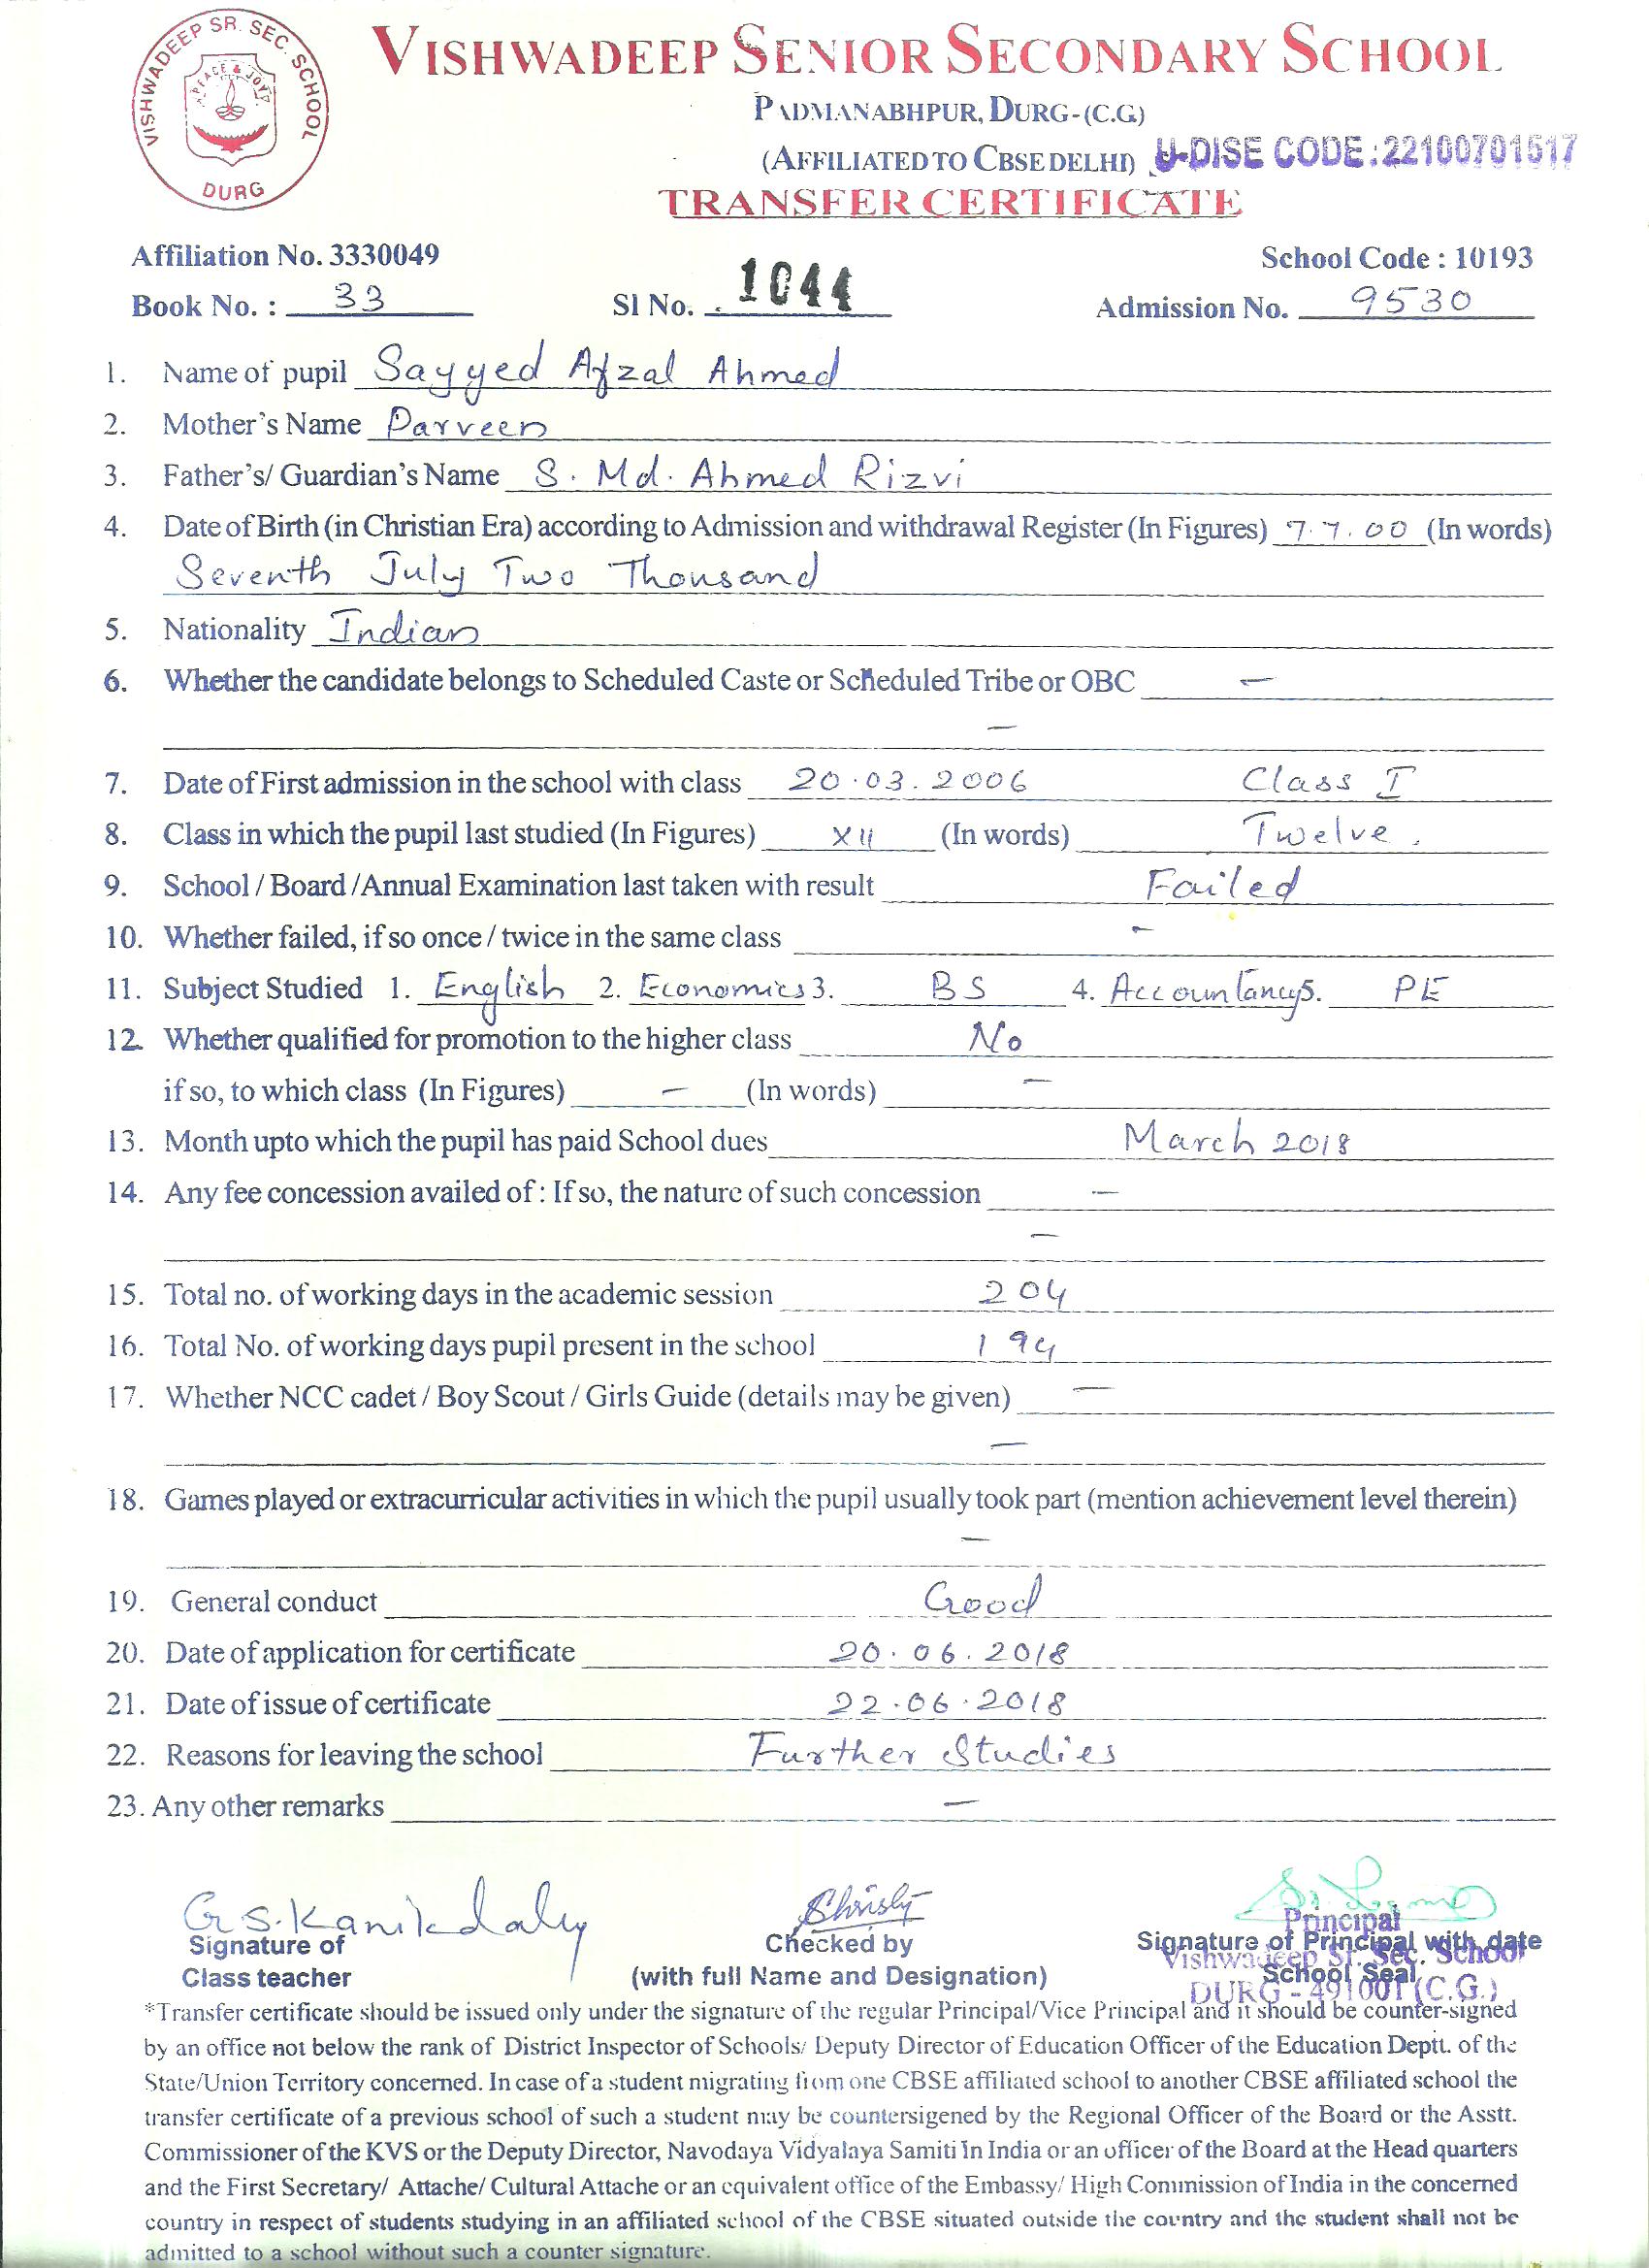 VISHWADEEP SR. SEC. SCHOOL
PEACE & JOY
DURG
VISHWADEEP SENIOR SECONDARY SCHOOL
PADMANABHPUR, DURG-(C.G.)
(AFFILIATED TO CBSE DELHI) U-DISE CODE:22100701617
TRANSFER CERTIFICATE
Affiliation No. 3330049 School Code : 10193
Book No. : 33 Sl No. 1044 Admission No. 9530
1. Name of pupil Sayyed Afzal Ahmed
2. Mother's Name Parveen
3. Father's/ Guardian's Name S. Md. Ahmed Rizvi
4. Date of Birth (in Christian Era) according to Admission and withdrawal Register (In Figures) 7.7.00 (In words)
Seventh July Two Thousand
5. Nationality Indian
6. Whether the candidate belongs to Scheduled Caste or Scheduled Tribe or OBC –
–
7. Date of First admission in the school with class 20.03.2006 Class I
8. Class in which the pupil last studied (In Figures) XII (In words) Twelve.
9. School / Board /Annual Examination last taken with result Failed
10. Whether failed, if so once / twice in the same class –
11. Subject Studied 1. English 2. Economics 3. BS 4. Accountancy 5. PE
12. Whether qualified for promotion to the higher class No
if so, to which class (In Figures) – (In words) –
13. Month upto which the pupil has paid School dues March 2018
14. Any fee concession availed of : If so, the nature of such concession –
–
15. Total no. of working days in the academic session 204
16. Total No. of working days pupil present in the school 194
17. Whether NCC cadet / Boy Scout / Girls Guide (details may be given) –
–
18. Games played or extracurricular activities in which the pupil usually took part (mention achievement level therein)
–
19. General conduct Good
20. Date of application for certificate 20.06.2018
21. Date of issue of certificate 22.06.2018
22. Reasons for leaving the school Further Studies
23. Any other remarks –
Principal
Signature of Checked by Signature of Principal with date
Vishwadeep Sr. Sec. School
Class teacher (with full Name and Designation) School Seal
DURG - 491001 (C.G.)
*Transfer certificate should be issued only under the signature of the regular Principal/Vice Principal and it should be counter-signed
by an office not below the rank of District Inspector of Schools/ Deputy Director of Education Officer of the Education Deptt. of the
State/Union Territory concerned. In case of a student migrating from one CBSE affiliated school to another CBSE affiliated school the
transfer certificate of a previous school of such a student may be countersigened by the Regional Officer of the Board or the Asstt.
Commissioner of the KVS or the Deputy Director, Navodaya Vidyalaya Samiti in India or an officer of the Board at the Head quarters
and the First Secretary/ Attache/ Cultural Attache or an equivalent office of the Embassy/ High Commission of India in the concerned
country in respect of students studying in an affiliated school of the CBSE situated outside the country and the student shall not be
admitted to a school without such a counter signature.